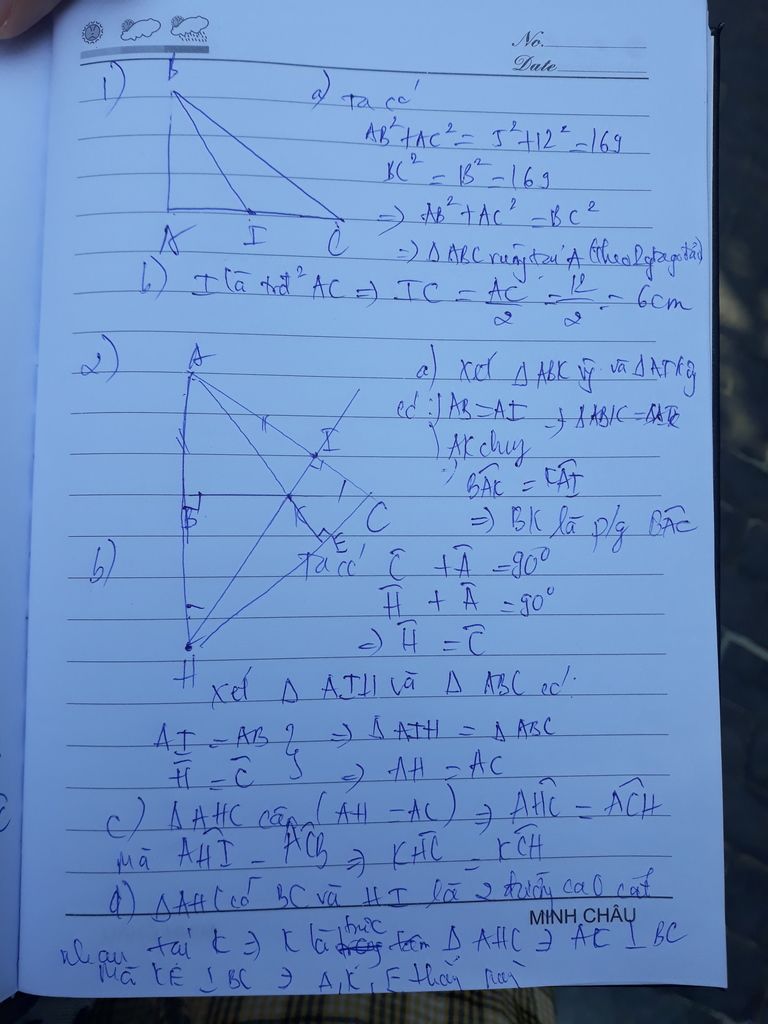 No.
Date
1)
B
A I C
a) Ta có
AB² + AC² = 5² + 12² = 169
BC² = 13² = 169
=> AB² + AC² = BC²
=> Δ ABC vuông tại A (theo Pytago đảo)
b) I là trđ AC => IC = AC/2 = 12/2 = 6cm
2)
A
I
B K C
E
H
a) Xét Δ ABK và Δ AIK
có: AB = AI => Δ ABK = Δ AIK
AK chung
BAK = KAI
=> BK là p/g BAC
b) Ta có C + A = 90⁰
H + A = 90⁰
=> H = C
Xét Δ AIH và Δ ABC có:
AI = AB } => Δ AIH = Δ ABC
H = C } => AH = AC
c) Δ AHC cân (AH = AC) => AHC = ACH
mà AHI = ACB => KHC = KCH
d) Δ AHC có BC và HI là 2 đường cao cắt
MINH CHÂU
nhau tại K => K là trực tâm Δ AHC => AK ⊥ BC
mà KE ⊥ BC => A, K, E thẳng hàng